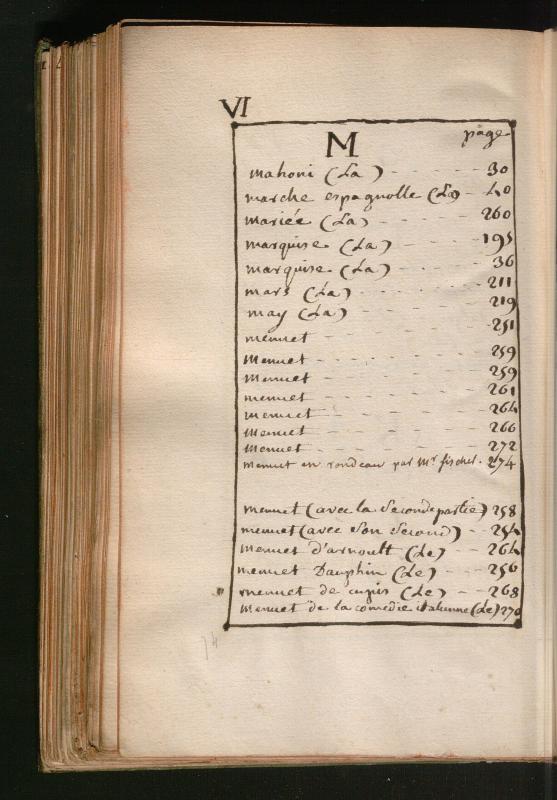 VI
M page
mahoni (La) 30
marche espagnolle (La) 40
mariée (La) 260
marquise (La) 195
marquise (La) 36
mars (La) 211
may (La) 219
menuet 251
Menuet 259
Menuet 259
menuet 261
menuet 264
Menuet 266
Menuet 272
menuet en rondeau par Mr fischer. 274
menuet (avec la Seconde partie) 258
menuet (avec Son Second) 254
Menuet d'arnoult (de) 264
menuet Dauphin (de) 256
menuet de cupis (de) 268
Menuet de la comedie italienne (de) 270